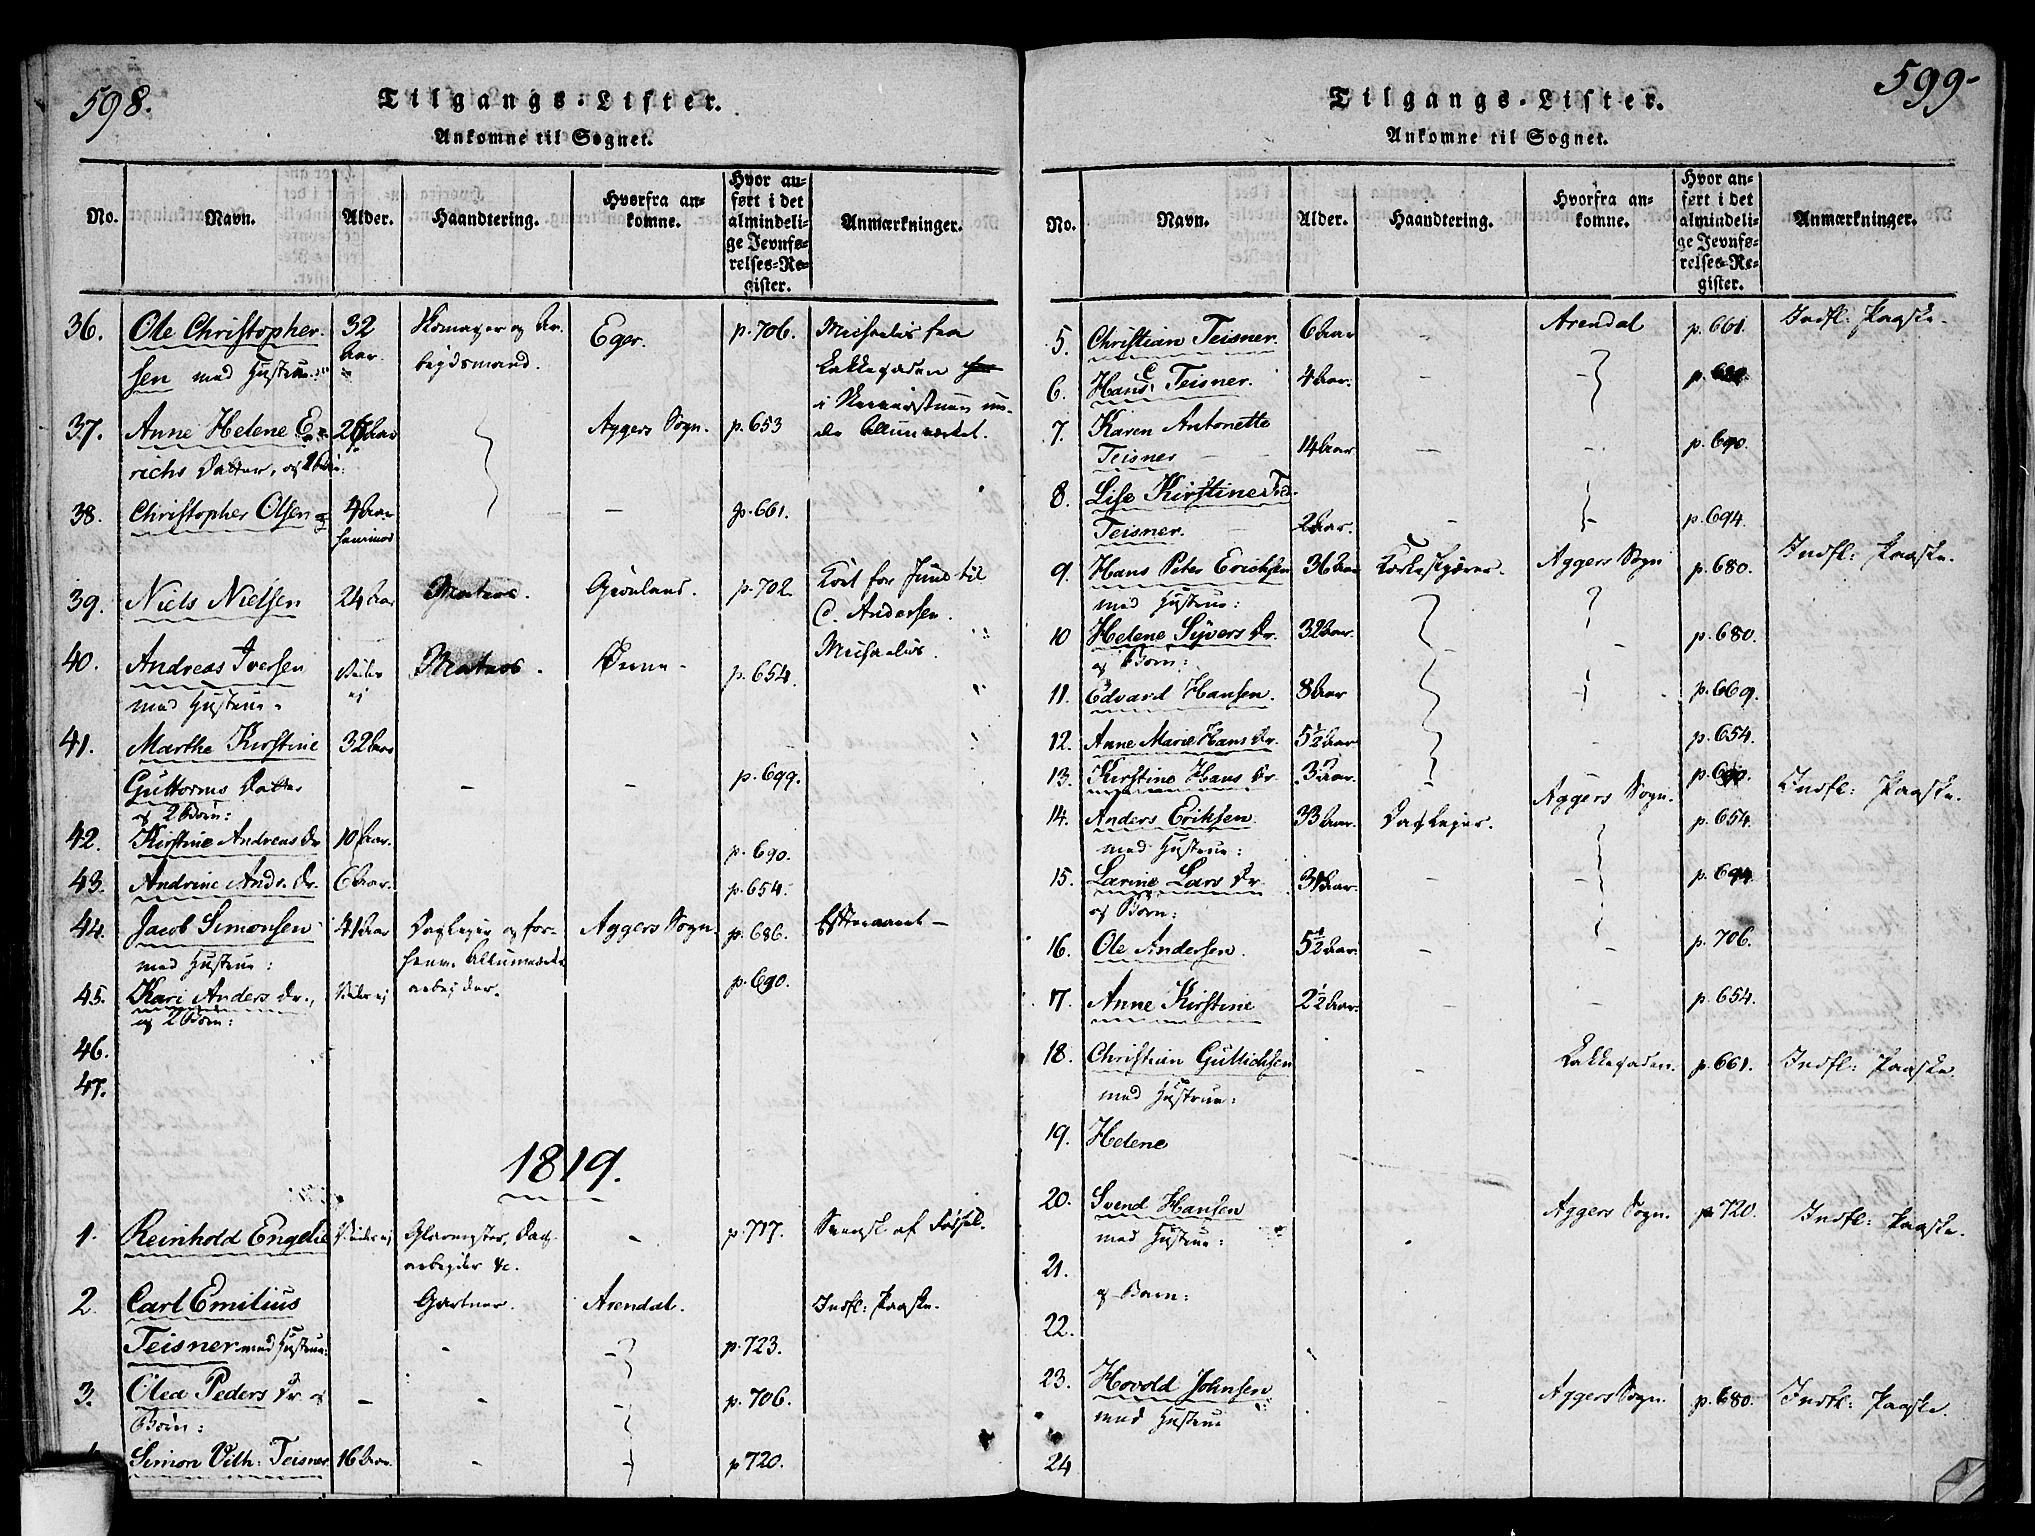 598.
Tilgangs-Lister.
Ankomne til Sognet.
No. Navn. Alder. Haandtering. Hvorfra ankomne. Hvor anført i det almindelige Jevnførelses-Register. Anmærkninger.
36. Ole Christopher- 32 Eger. p. 706. Michaelis fra
sen med Hustrue. Aar. beydsmand. Lakkegaden
37. Anne Helene E- Aar Aggers Sogn. p. 653
richs Datter, og Allunværket.
38. Christopher Olsen 4 Aar — p. 661.
39. Niels Nielsen 24 Aar Matros. Grønland. p. 702. Kost for Jund til
C. Andersen.
40. Andreas Iversen Veides Matros. p. 654. Michaelis.
med Hustrue ej
41. Marthe Kirstine 32 Aar
Guttorms Datter — — p. 699.
og 2 Børn:
42. Kirstine Andreas Dr 10 Aar. p. 690.
43. Andrine Andr. Dr. 6 Aar. p. 654.
44. Jacob Simonsen 41 Aar Dagleyer og for- Aggers Sogn. p. 686. Efteraaret —
med Hustrue: Allunværks
45. Kari Anders Dr., Veides ej arbejder. p. 690.
og 2 Børn:
46.
47.
1819.
1. Reinhold Engelie Veides ej Glarmester, Dag- — p. 717. Svensk af Fødsel.
arbejder &c.
2. Carl Emilius Gartner. Arendal. Indfl: Paaske.
Teisner med Hustrue: - — p. 723.
3. Olea Peders Dr og — - — p. 706.
Børn:
Simon Vilh: Teisner 16 Aar. - — p 720.
599-
Tilgangs-Lister.
Ankomne til Sognet.
No. Navn. Alder. Haandtering. Hvorfra ankomne. Hvor anført i det almindelige Jevnførelses-Register. Anmærkninger.
5. Christian Teisner. 6 Aar — Arendal p. 661. Indfl: Paaske.
6. Hans C Teisner. 4 Aar. — — p.
7. Karen Antonette
Teisner — — 14 Aar — — p. 690.
8. Lise Kirstine
Teisner. 2 Aar. — — p. 694.
9. Hans Peter Erichsen 36 Aar Aggers Sogn p. 680. Indfl: Paaske.
med Hustrue:
10 Helene Syvers Dr. 32 Aar. — p. 680.
og Børn:
11. Edvard Hansen. 8 Aar — p. 669.
12. Anne Marie Hans Dr. 5½ Aar — p. 654.
13. Kirstine Hans Dr 3 Aar. p.
14. Anders Eriksen 33 Aar. Dagleyer. Aggers Sogn. p. 654. Indfl: Paaske.
med Hustrue:
15. Larine Lars Dr. 31 Aar. — — p. 694.
og Børn:
16. Ole Andersen. 5½ Aar. — — p. 706.
17. Anne Kirstine 2½ Aar. — — p. 654.
18. Christian Gullichsen — Lakkegaden. p. 661. Indfl: Paaske.
med Hustrue:
19. Helene
20. Svend Hansen Aggers Sogn. p 720. Indfl: Paaske.
med Hustrue:
21.
og Barn:
22.
23. Hovold Johnsen — Aggers Sogn. p. 680. Indfl: Paaske.
med Hustrue
24